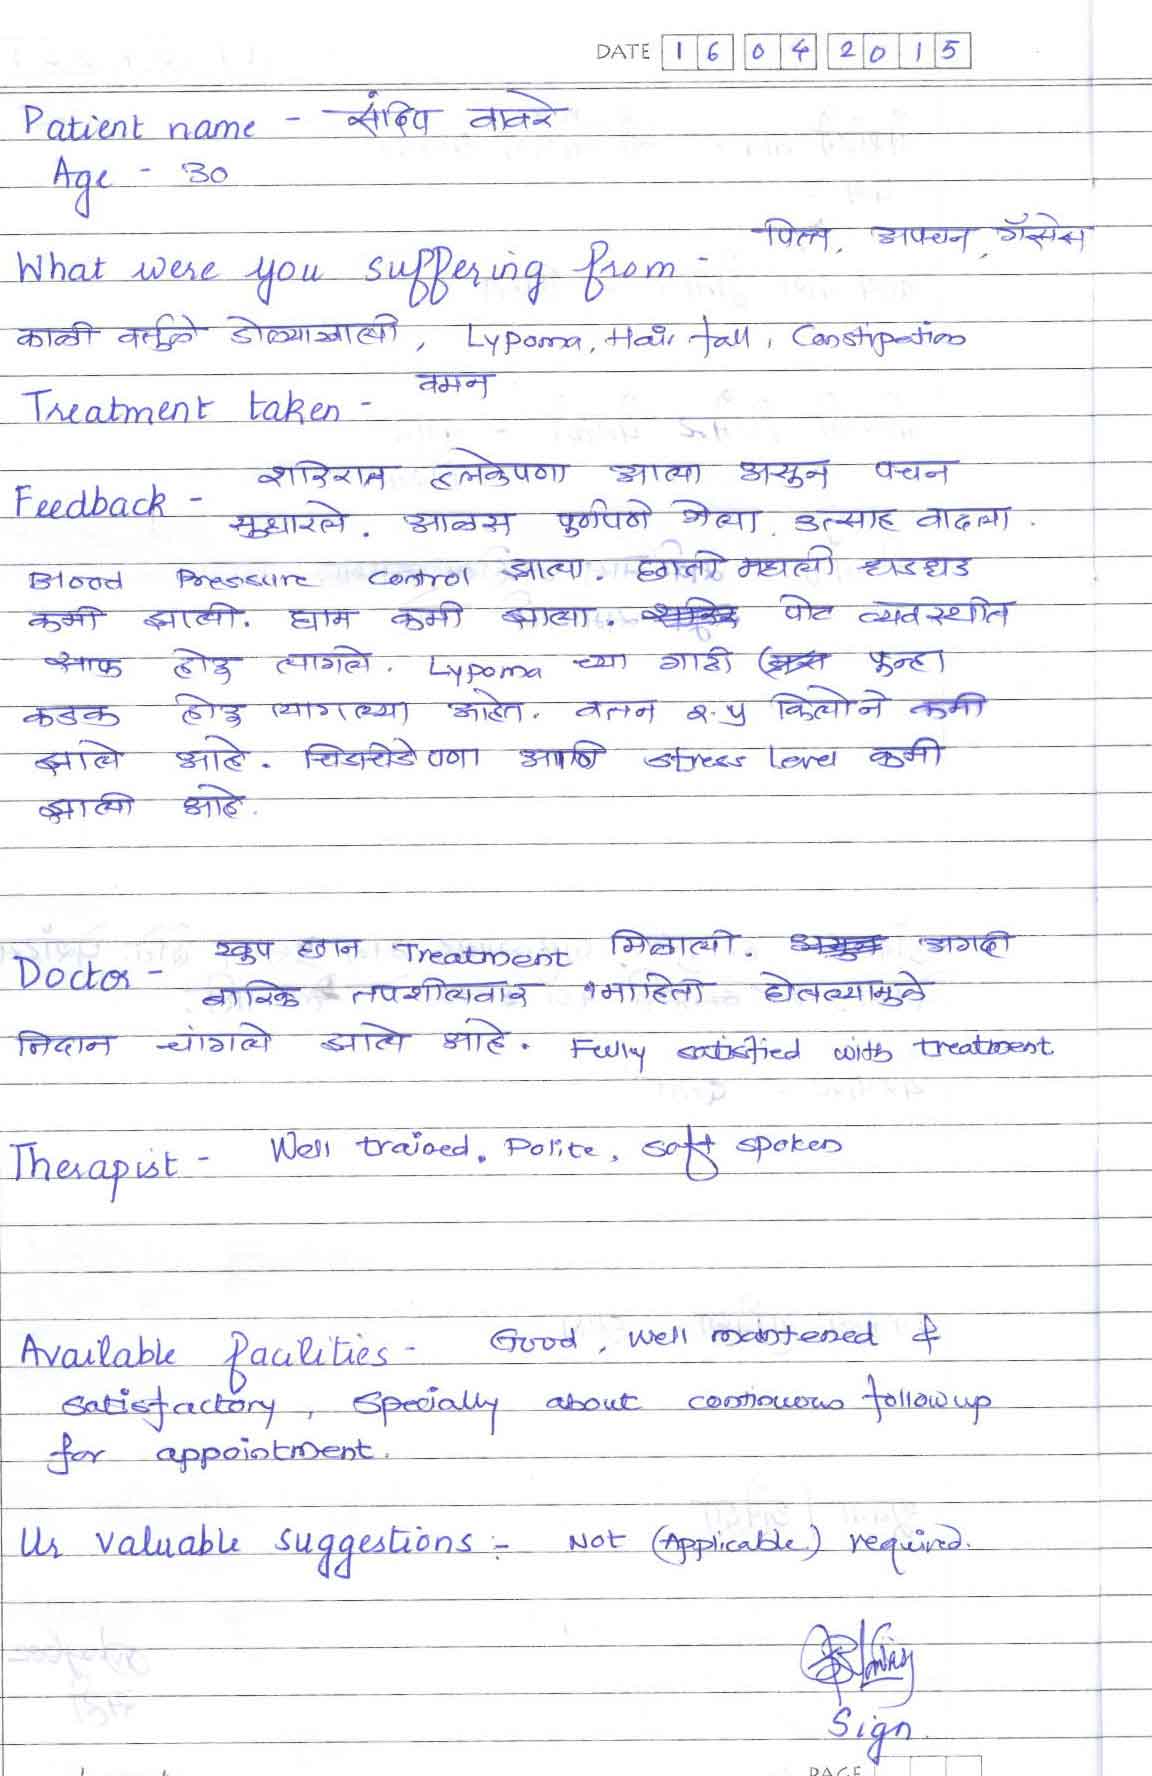 DATE 16 04 2015
Patient name - संदिप वावरे
Age - 30
पित्त, अपचन, गॅसेस
What were you suffering from -
काळी वर्तुळे डोळ्याखाली, Lypoma, Hair fall, Constipation
वमन
Treatment taken -
शरिरात हलकेपणा आला असुन पचन
Feedback -
सुधारले. आळस पुर्णपणे गेला. उत्साह वाढला.
Blood Pressure control झाला. छातीमधली धडधड
कमी झाली. घाम कमी झाला. पोट व्यवस्थीत
साफ होवु लागले. Lypoma च्या गाठी पुन्हा
कडक होवु लागल्या आहेत. वजन २.५ किलोने कमी
झाले आहे. चिडचिडेपणा आणि stress level कमी
झाली आहे.
खुप छान Treatment मिळाली. अगदी
Doctor -
बारिक तपशीलवार माहिती घेतल्यामुळे
निदान चांगले झाले आहे. Fully satisfied with treatment
Therapist - Well trained, Polite, soft spoken
Available facilities - Good, well maintened &
satisfactory, specially about continuous followup
for appointment.
Ur valuable suggestions :- Not (Applicable) required.
Sign
PAGE